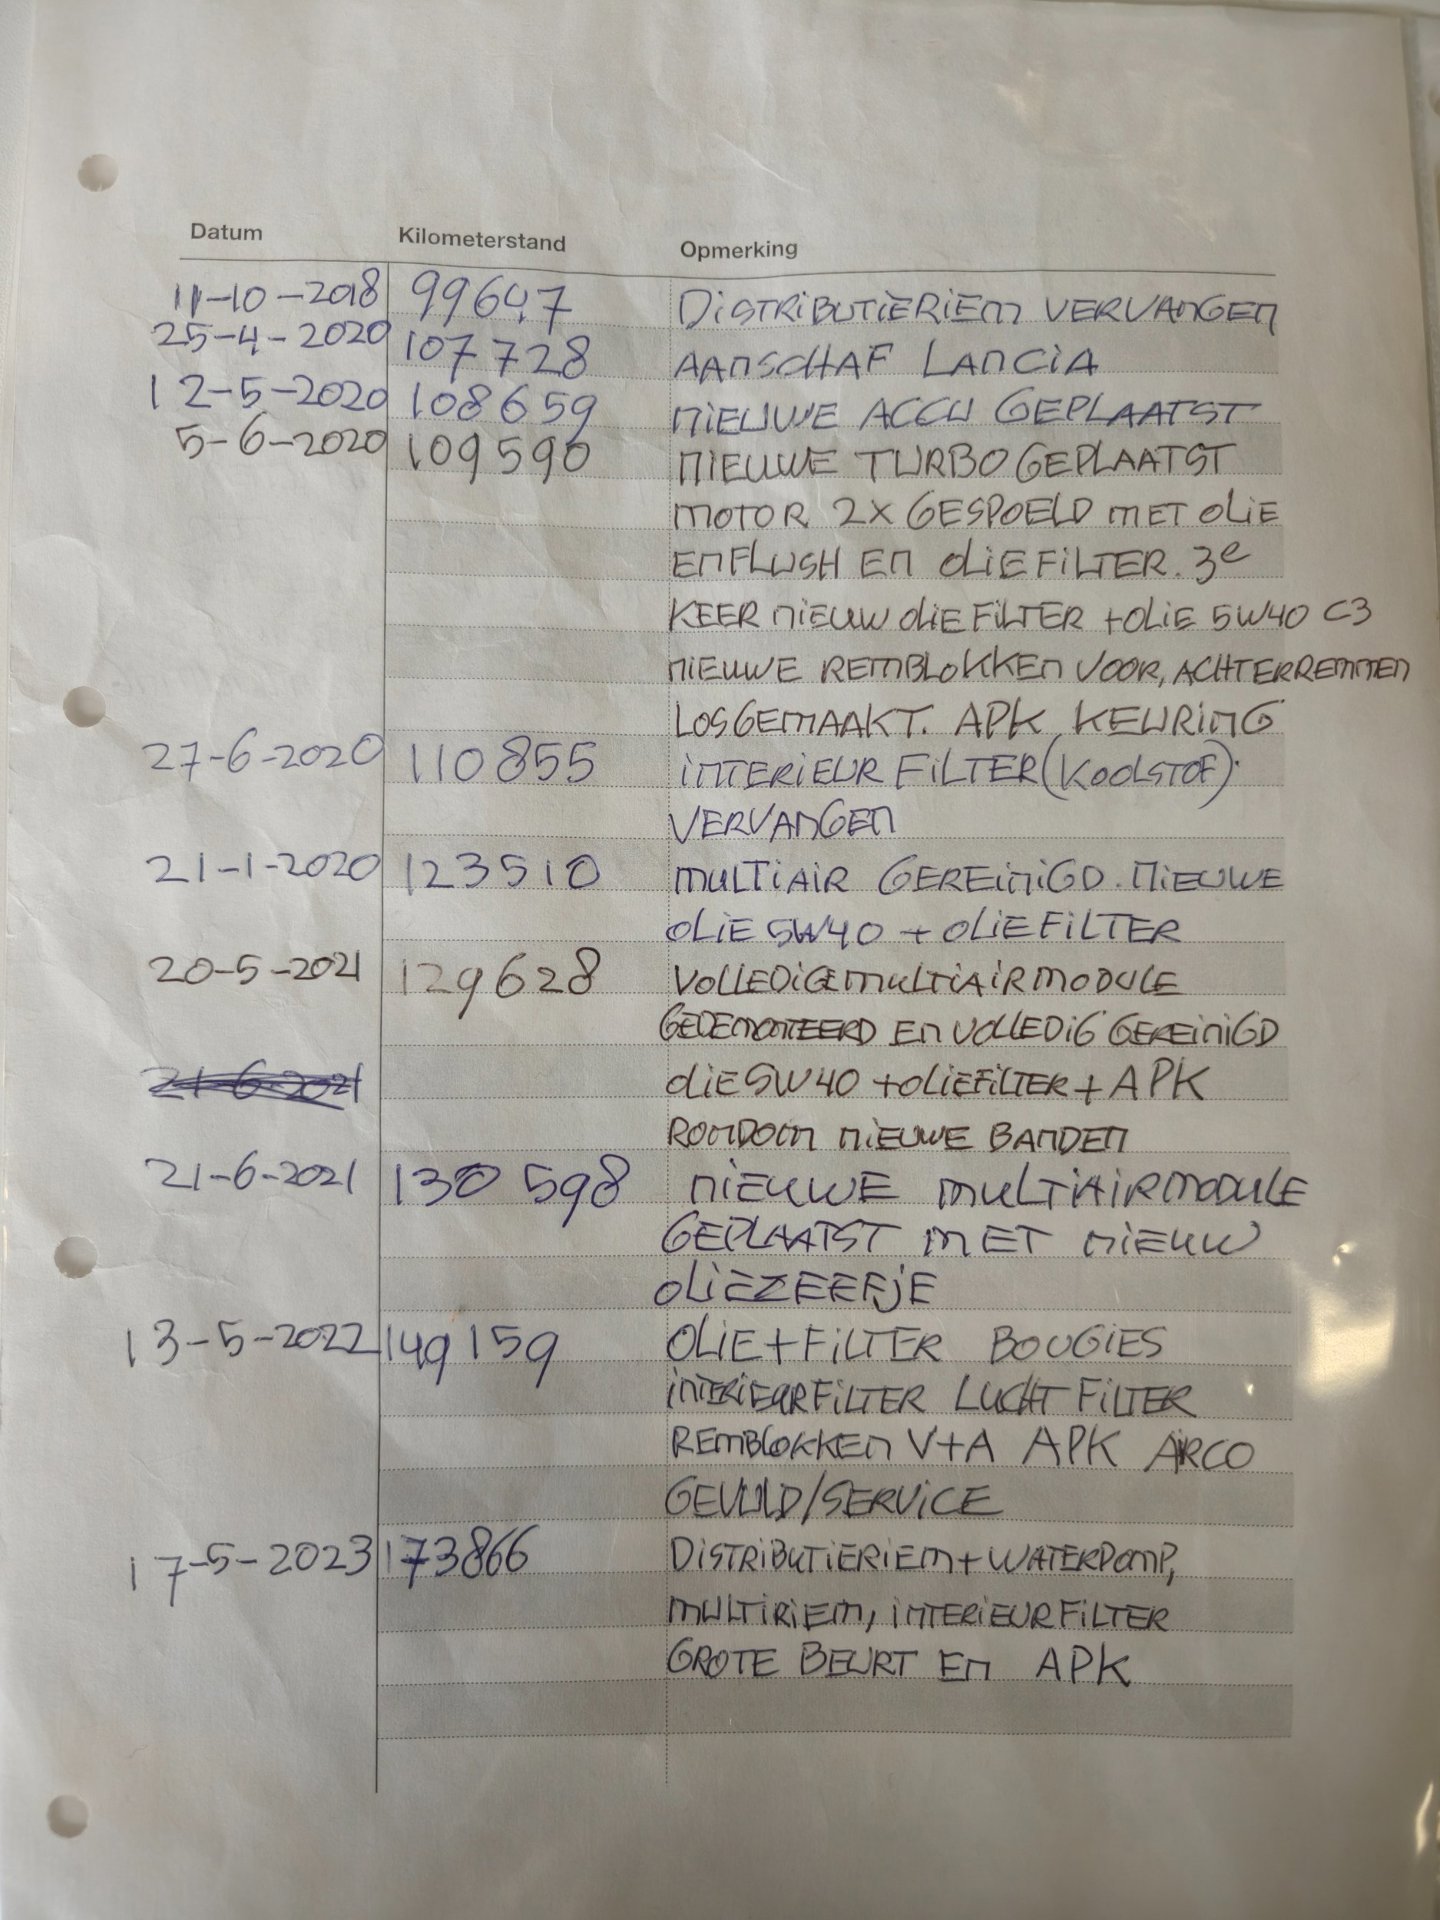 Datum Kilometerstand Opmerking
11-10-2018 99647 DISTRIBUTIERIEM VERVANGEN
25-4-2020 107728 AANSCHAF LANCIA
12-5-2020 108659 NIEUWE ACCU GEPLAATST
5-6-2020 109590 NIEUWE TURBO GEPLAATST
MOTOR 2X GESPOELD MET OLIE
EN FLUSH EN OLIEFILTER. 3e
KEER NIEUW OLIEFILTER + OLIE 5W40 C3
NIEUWE REMBLOKKEN VOOR, ACHTERREMMEN
LOSGEMAAKT. APK KEURING
27-6-2020 110855 INTERIEUR FILTER (KOOLSTOF)
VERVANGEN
21-1-2020 123510 MULTIAIR GEREINIGD. NIEUWE
OLIE 5W40 + OLIEFILTER
20-5-2021 129628 VOLLEDIGE MULTIAIR MODULE
GEDEMONTEERD EN VOLLEDIG GEREINIGD
21-6-2021 OLIE 5W40 + OLIEFILTER + APK
RONDOM NIEUWE BANDEN
21-6-2021 130598 NIEUWE MULTIAIRMODULE
GEPLAATST MET NIEUW
OLIEZEEFJE
13-5-2022 149159 OLIE + FILTER BOUGIES
INTERIEURFILTER LUCHT FILTER
REMBLOKKEN V+A APK AIRCO
GEVULD/SERVICE
17-5-2023 173866 DISTRIBUTIERIEM + WATERPOMP,
MULTIRIEM, INTERIEURFILTER
GROTE BEURT EN APK